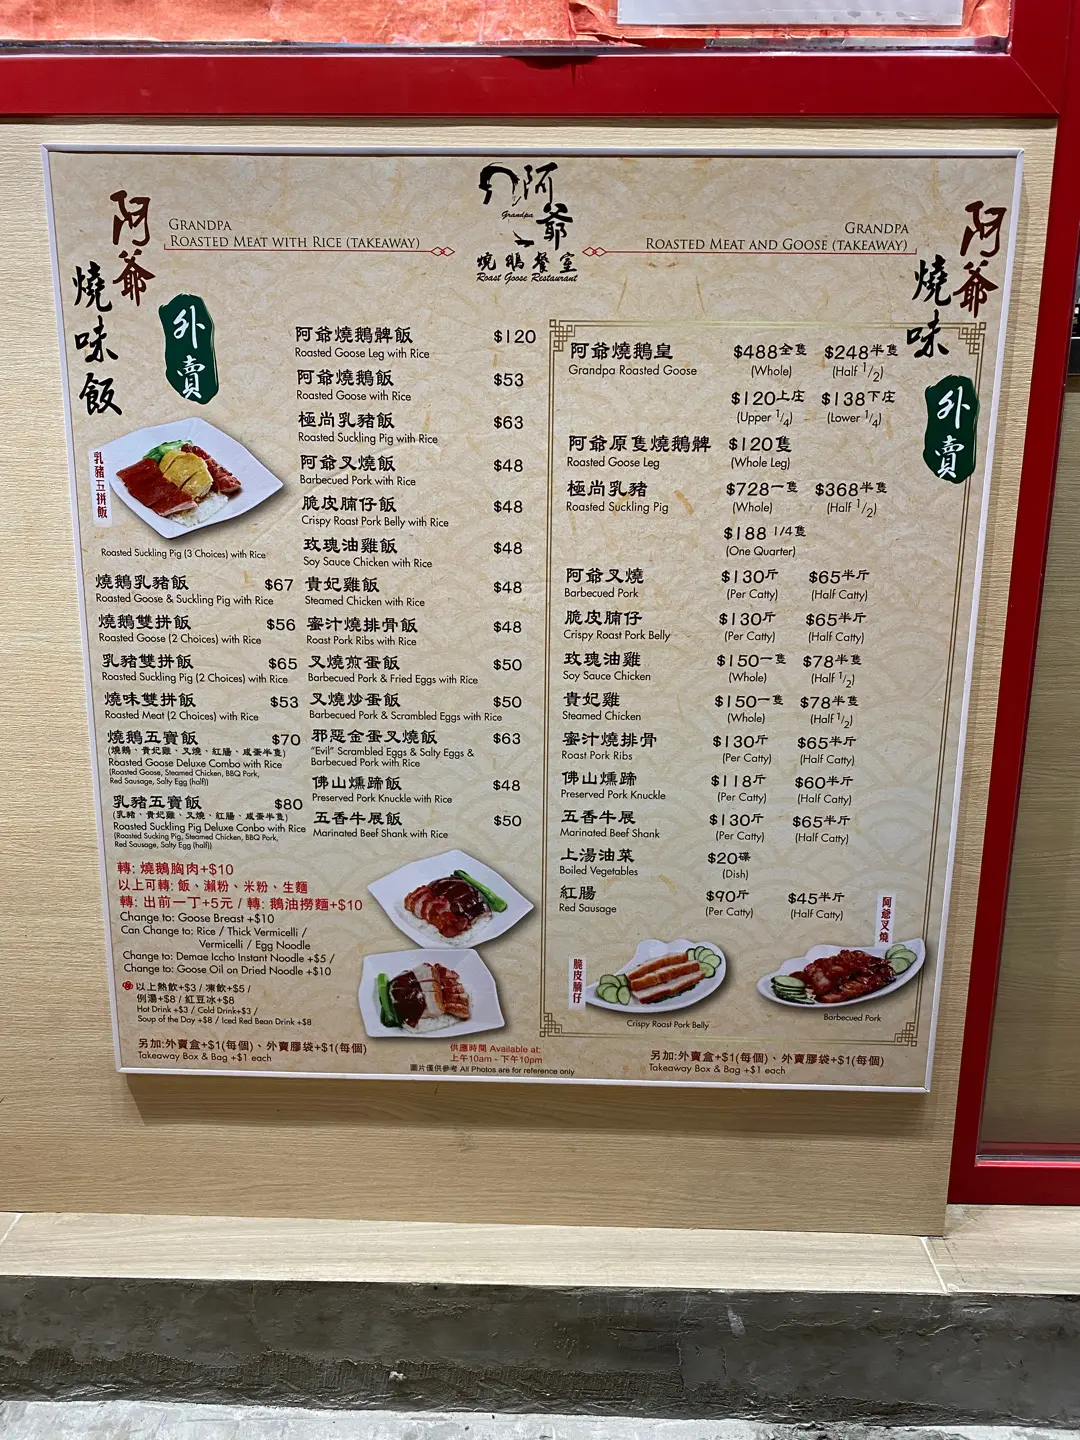 阿爺
燒味飯
外賣
GRANDPA
ROASTED MEAT WITH RICE (TAKEAWAY)
阿爺
Grandpa
燒鵝餐室
Roast Goose Restaurant
GRANDPA
ROASTED MEAT AND GOOSE (TAKEAWAY)
阿爺
燒味
外賣
乳豬五拼飯
Roasted Suckling Pig (3 Choices) with Rice
燒鵝乳豬飯 $67
Roasted Goose & Suckling Pig with Rice
燒鵝雙拼飯 $56
Roasted Goose (2 Choices) with Rice
乳豬雙拼飯 $65
Roasted Suckling Pig (2 Choices) with Rice
燒味雙拼飯 $53
Roasted Meat (2 Choices) with Rice
燒鵝五寶飯 $70
(燒鵝、貴妃雞、叉燒、紅腸、咸蛋半隻)
Roasted Goose Deluxe Combo with Rice
(Roasted Goose, Steamed Chicken, BBQ Pork,
Red Sausage, Salty Egg (half))
乳豬五寶飯 $80
(乳豬、貴妃雞、叉燒、紅腸、咸蛋半隻)
Roasted Suckling Pig Deluxe Combo with Rice
(Roasted Sucking Pig, Steamed Chicken, BBQ Pork,
Red Sausage, Salty Egg (half))
阿爺燒鵝髀飯 $120
Roasted Goose Leg with Rice
阿爺燒鵝飯 $53
Roasted Goose with Rice
極尚乳豬飯 $63
Roasted Suckling Pig with Rice
阿爺叉燒飯 $48
Barbecued Pork with Rice
脆皮腩仔飯 $48
Crispy Roast Pork Belly with Rice
玫瑰油雞飯 $48
Soy Sauce Chicken with Rice
貴妃雞飯 $48
Steamed Chicken with Rice
蜜汁燒排骨飯 $48
Roast Pork Ribs with Rice
叉燒煎蛋飯 $50
Barbecued Pork & Fried Eggs with Rice
叉燒炒蛋飯 $50
Barbecued Pork & Scrambled Eggs with Rice
邪惡金蛋叉燒飯 $63
"Evil" Scrambled Eggs & Salty Eggs &
Barbecued Pork with Rice
佛山燻蹄飯 $48
Preserved Pork Knuckle with Rice
五香牛展飯 $50
Marinated Beef Shank with Rice
轉: 燒鵝胸肉+$10
以上可轉: 飯、瀨粉、米粉、生麵
轉: 出前一丁+5元 / 轉: 鵝油撈麵+$10
Change to: Goose Breast +$10
Can Change to: Rice / Thick Vermicelli /
Vermicelli / Egg Noodle
Change to: Demae Iccho Instant Noodle +$5 /
Change to: Goose Oil on Dried Noodle +$10
以上熱飲+$3 / 凍飲+$5 /
例湯+$8 / 紅豆冰+$8
Hot Drink +$3 / Cold Drink+$3 /
Soup of the Day +$8 / Iced Red Bean Drink +$8
另加:外賣盒+$1(每個)、外賣膠袋+$1(每個)
Takeaway Box & Bag +$1 each
供應時間 Available at:
上午10am - 下午10pm
圖片僅供參考 All Photos are for reference only
阿爺燒鵝皇 $488全隻 $248半隻
Grandpa Roasted Goose (Whole) (Half 1/2)
$120上庄 $138下庄
(Upper 1/4) (Lower 1/4)
阿爺原隻燒鵝髀 $120隻
Roasted Goose Leg (Whole Leg)
極尚乳豬 $728一隻 $368半隻
Roasted Suckling Pig (Whole) (Half 1/2)
$188 1/4隻
(One Quarter)
阿爺叉燒 $130斤 $65半斤
Barbecued Pork (Per Catty) (Half Catty)
脆皮腩仔 $130斤 $65半斤
Crispy Roast Pork Belly (Per Catty) (Half Catty)
玫瑰油雞 $150一隻 $78半隻
Soy Sauce Chicken (Whole) (Half 1/2)
貴妃雞 $150一隻 $78半隻
Steamed Chicken (Whole) (Half 1/2)
蜜汁燒排骨 $130斤 $65半斤
Roast Pork Ribs (Per Catty) (Half Catty)
佛山燻蹄 $118斤 $60半斤
Preserved Pork Knuckle (Per Catty) (Half Catty)
五香牛展 $130斤 $65半斤
Marinated Beef Shank (Per Catty) (Half Catty)
上湯油菜 $20碟
Boiled Vegetables (Dish)
紅腸 $90斤 $45半斤
Red Sausage (Per Catty) (Half Catty)
脆皮腩仔
Crispy Roast Pork Belly
阿爺叉燒
Barbecued Pork
另加:外賣盒+$1(每個)、外賣膠袋+$1(每個)
Takeaway Box & Bag +$1 each